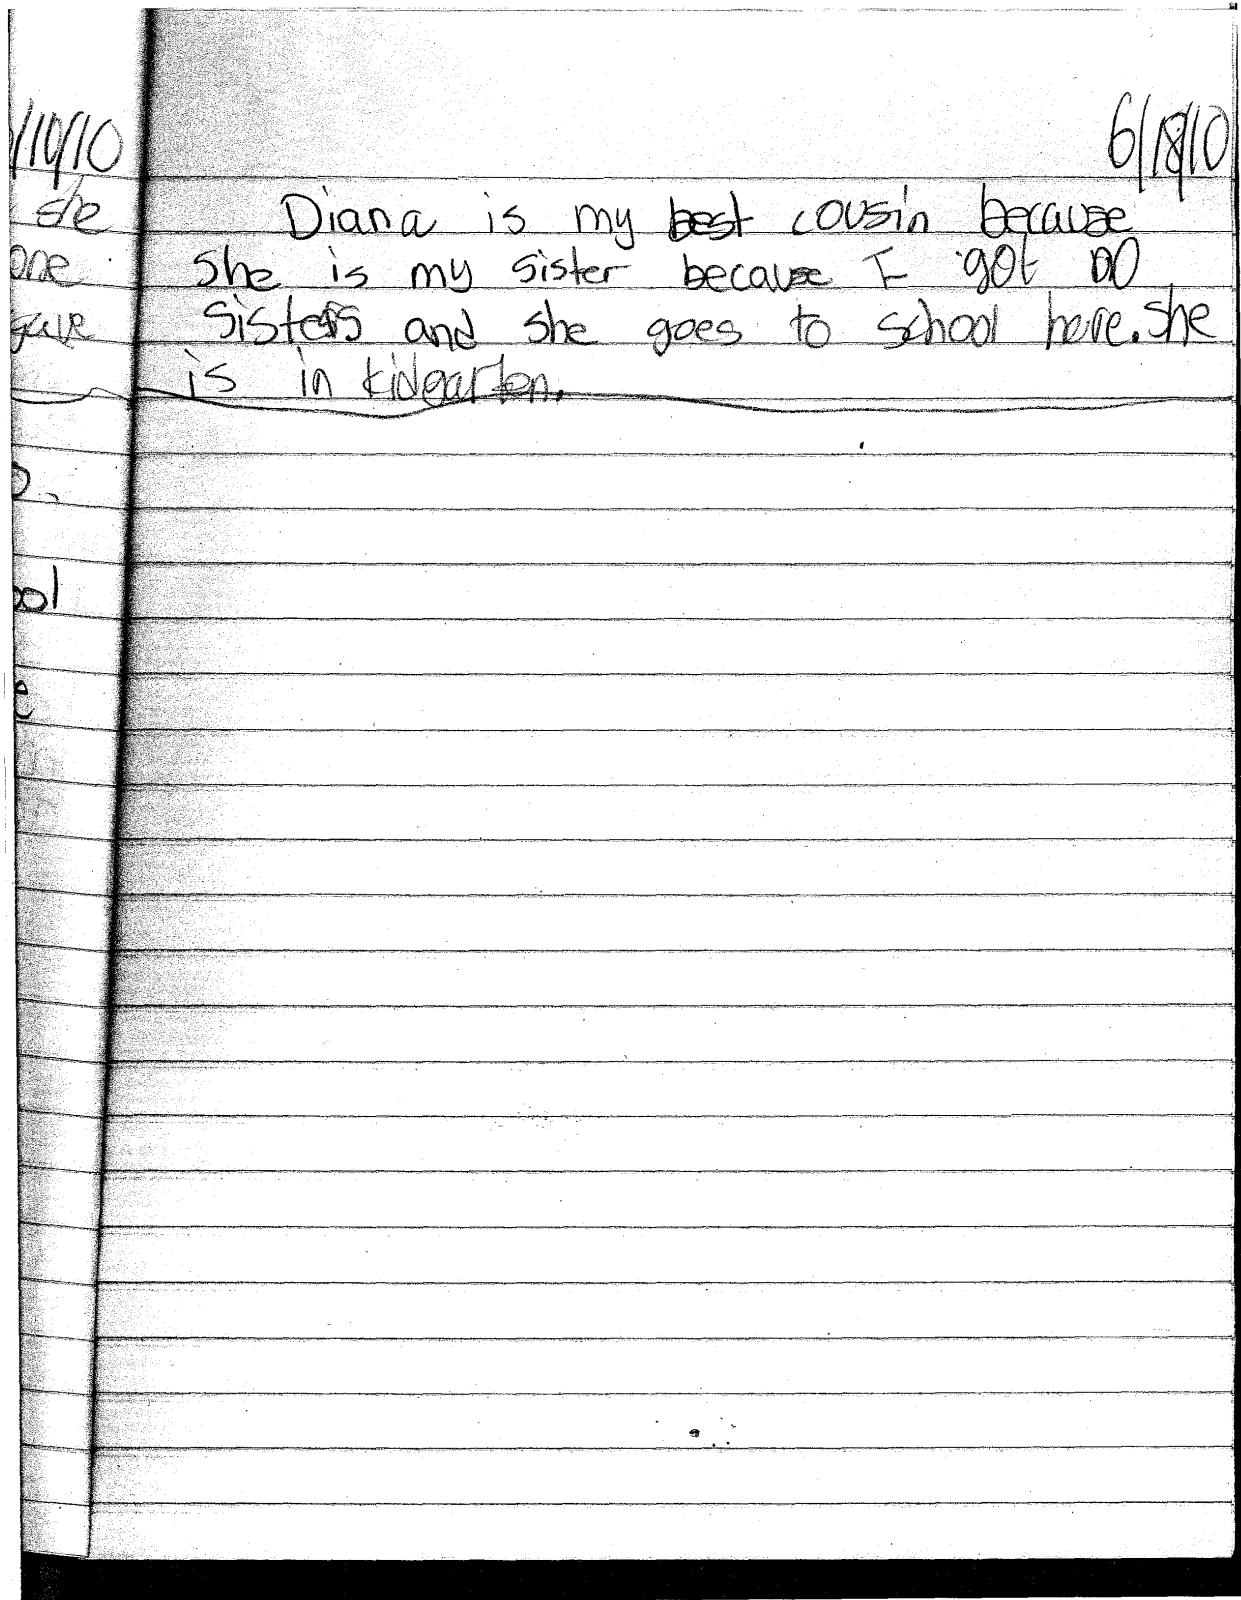 /10/10
she
one
gave
ool
e
6/18/10
Diana is my best cousin because
she is my sister because I got no
sisters and she goes to school here. She
is in kidgarten.